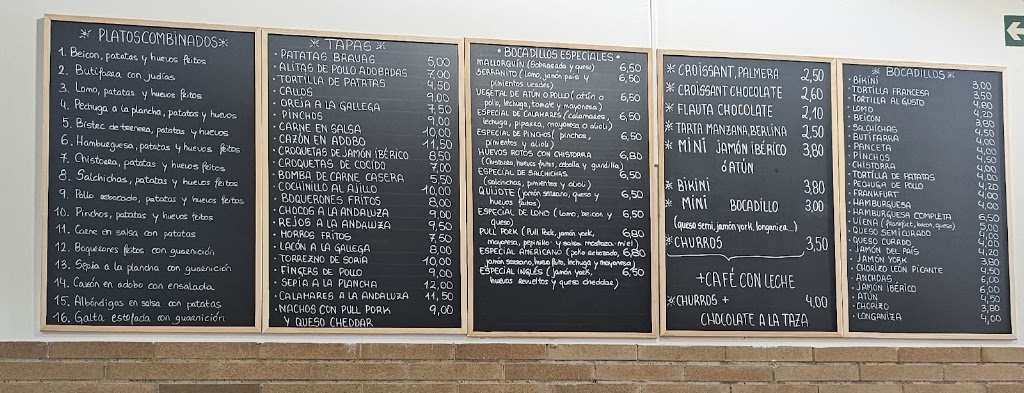 * PLATOS COMBINADOS *
1. Beicon, patatas y huevos fritos
2. Butifarra con judías
3. Lomo, patatas y huevos fritos
4. Pechuga a la plancha, patatas y huevos
5. Bistec de ternera, patatas y huevos
6. Hamburguesa, patatas y huevos fritos
7. Chistorra, patatas y huevos fritos
8. Salchichas, patatas y huevos fritos
9. Pollo rebozado, patatas y huevos fritos
10. Pinchos, patatas y huevos fritos
11. Carne en salsa con patatas
12. Boquerones fritos con guarnición
13. Sepia a la plancha con guarnición
14. Cazón en adobo con ensalada
15. Albóndigas en salsa con patatas
16. Galta estofada con guarnición
* TAPAS *
• PATATAS BRAVAS 5,00
• ALITAS DE POLLO ADOBADAS 7,00
• TORTILLA DE PATATAS 4,50
• CALLOS 9,00
• OREJA A LA GALLEGA 7,50
• PINCHOS 9,00
• CARNE EN SALSA 10,00
• CAZÓN EN ADOBO 11,50
• CROQUETAS DE JAMÓN IBÉRICO 8,50
• CROQUETAS DE COCIDO 7,00
• BOMBA DE CARNE CASERA 5,50
• COCHINILLO AL AJILLO 10,00
• BOQUERONES FRITOS 8,00
• CHOCOS A LA ANDALUZA 9,00
• REJOS A LA ANDALUZA 9,50
• MORROS FRITOS 7,50
• LACÓN A LA GALLEGA 8,00
• TORREZNO DE SORIA 10,00
• FINGERS DE POLLO 9,00
• SEPIA A LA PLANCHA 12,00
• CALAMARES A LA ANDALUZA 11,50
• NACHOS CON PULL PORK 9,00
Y QUESO CHEDDAR
• BOCADILLOS ESPECIALES •
MALLORQUÍN (Sobrasada y queso) 6,50
SERRANITO (Lomo, jamón país y 6,50
pimientos verdes)
VEGETAL DE ATÚN O POLLO (atún o 6,50
pollo, lechuga, tomate y mayonesa)
ESPECIAL DE CALAMARES (calamares, 6,50
lechuga, piparra, mayonesa o alioli)
ESPECIAL DE PINCHOS (pinchos, 6,50
pimientos y alioli)
HUEVOS ROTOS CON CHISTORRA 6,80
(Chistorra, huevos fritos, cebolla y guindilla)
ESPECIAL DE SALCHICHAS 6,50
(salchichas, pimientos y alioli)
QUIJOTE (jamón serrano, queso y 6,50
huevos fritos)
ESPECIAL DE LOMO (Lomo, beicon y 6,50
queso)
PULL PORK (Pull Pork, jamón york, 6,80
mayonesa, pepinillo y salsa mostaza-miel)
ESPECIAL AMERICANO (pollo rebozado, 6,80
jamón serrano, huevo frito, lechuga y mayonesa)
ESPECIAL INGLÉS (jamón york, 6,50
huevos revueltos y queso cheddar)
* CROISSANT, PALMERA 2,50
* CROISSANT CHOCOLATE 2,60
* FLAUTA CHOCOLATE 2,10
* TARTA MANZANA, BERLINA 2,50
* MINI JAMÓN IBÉRICO 3,80
Ó ATÚN
* BIKINI 3,80
* MINI BOCADILLO 3,00
(queso semi, jamón york, longaniza...)
* CHURROS 3,50
+ CAFÉ CON LECHE
* CHURROS + 4,00
CHOCOLATE A LA TAZA
* BOCADILLOS *
• BIKINI 3,00
• TORTILLA FRANCESA 3,50
• TORTILLA AL GUSTO 4,80
• LOMO 4,20
• BEICON 3,80
• SALCHICHAS 4,50
• BUTIFARRA 4,50
• PANCETA 4,00
• PINCHOS 4,50
• CHISTORRA 4,00
• TORTILLA DE PATATAS 4,00
• PECHUGA DE POLLO 4,20
• FRANKFURT 4,00
• HAMBURGUESA 4,00
• HAMBURGUESA COMPLETA 6,50
• VIENA (frankfurt, bacon, queso) 5,00
• QUESO SEMICURADO 4,00
• QUESO CURADO 4,00
• JAMÓN DEL PAÍS 4,20
• JAMÓN YORK 3,80
• CHORIZO LEÓN PICANTE 4,50
• ANCHOAS 6,00
• JAMÓN IBÉRICO 6,00
• ATÚN 4,50
• CHORIZO 3,50
• LONGANIZA 4,00